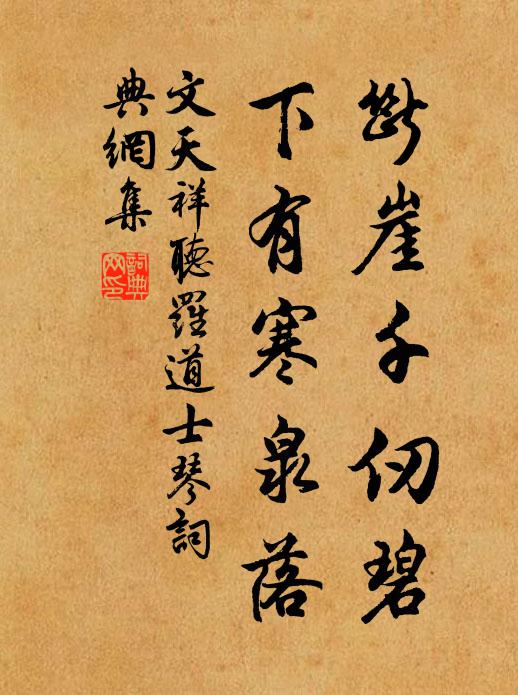 斷崖千仞碧
下有寒泉落
文天祥聽羅道士琴詞
典網集
詞典
网印